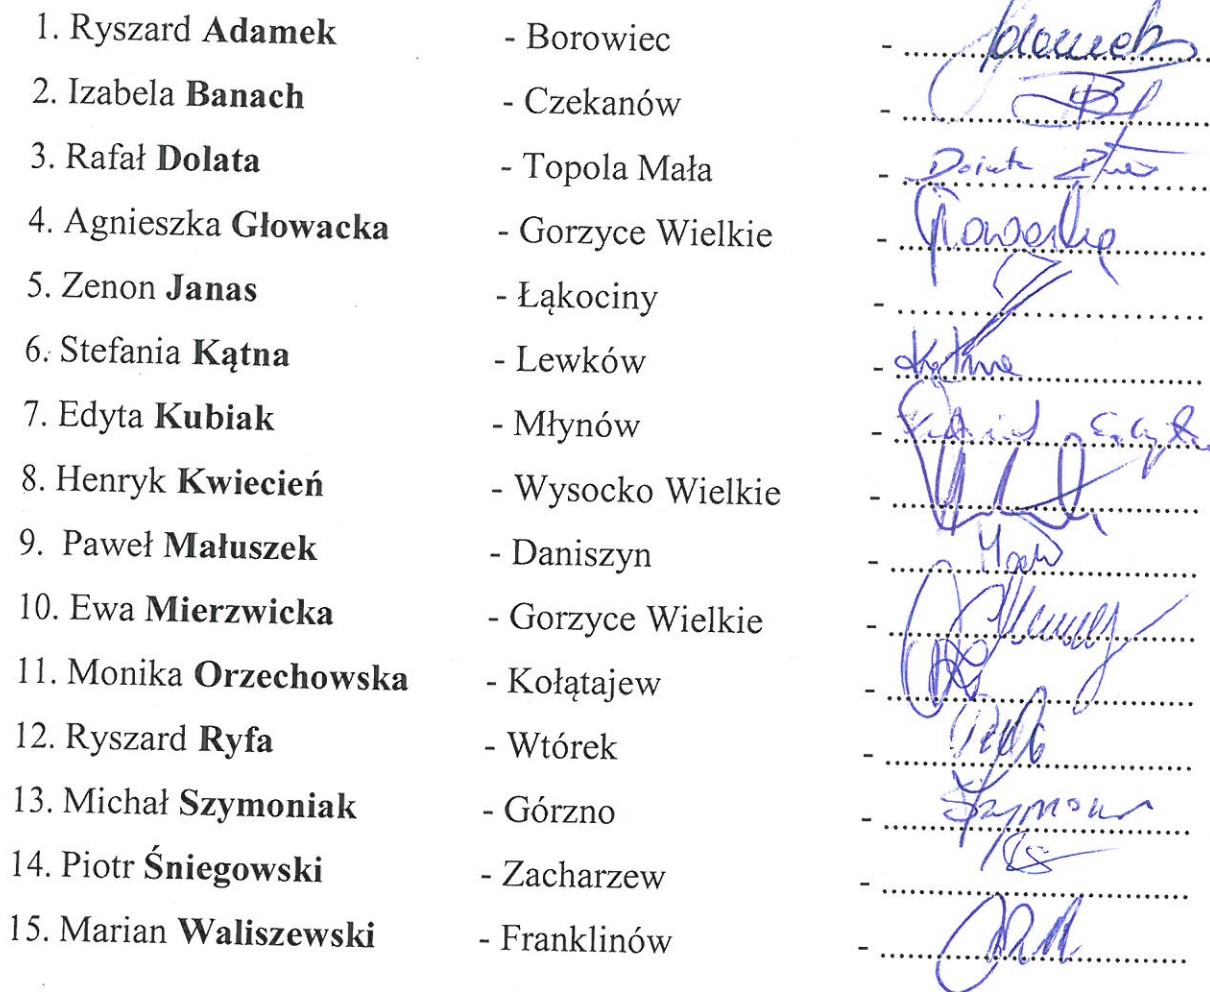 1. Ryszard Adamek - Borowiec - Adamek
2. Izabela Banach - Czekanów -
3. Rafał Dolata - Topola Mała -
4. Agnieszka Głowacka - Gorzyce Wielkie - Głowacka
5. Zenon Janas - Łąkociny -
6. Stefania Kątna - Lewków - Kątna
7. Edyta Kubiak - Młynów -
8. Henryk Kwiecień - Wysocko Wielkie -
9. Paweł Małuszek - Daniszyn -
10. Ewa Mierzwicka - Gorzyce Wielkie -
11. Monika Orzechowska - Kołątajew -
12. Ryszard Ryfa - Wtórek -
13. Michał Szymoniak - Górzno -
14. Piotr Śniegowski - Zacharzew -
15. Marian Waliszewski - Franklinów -